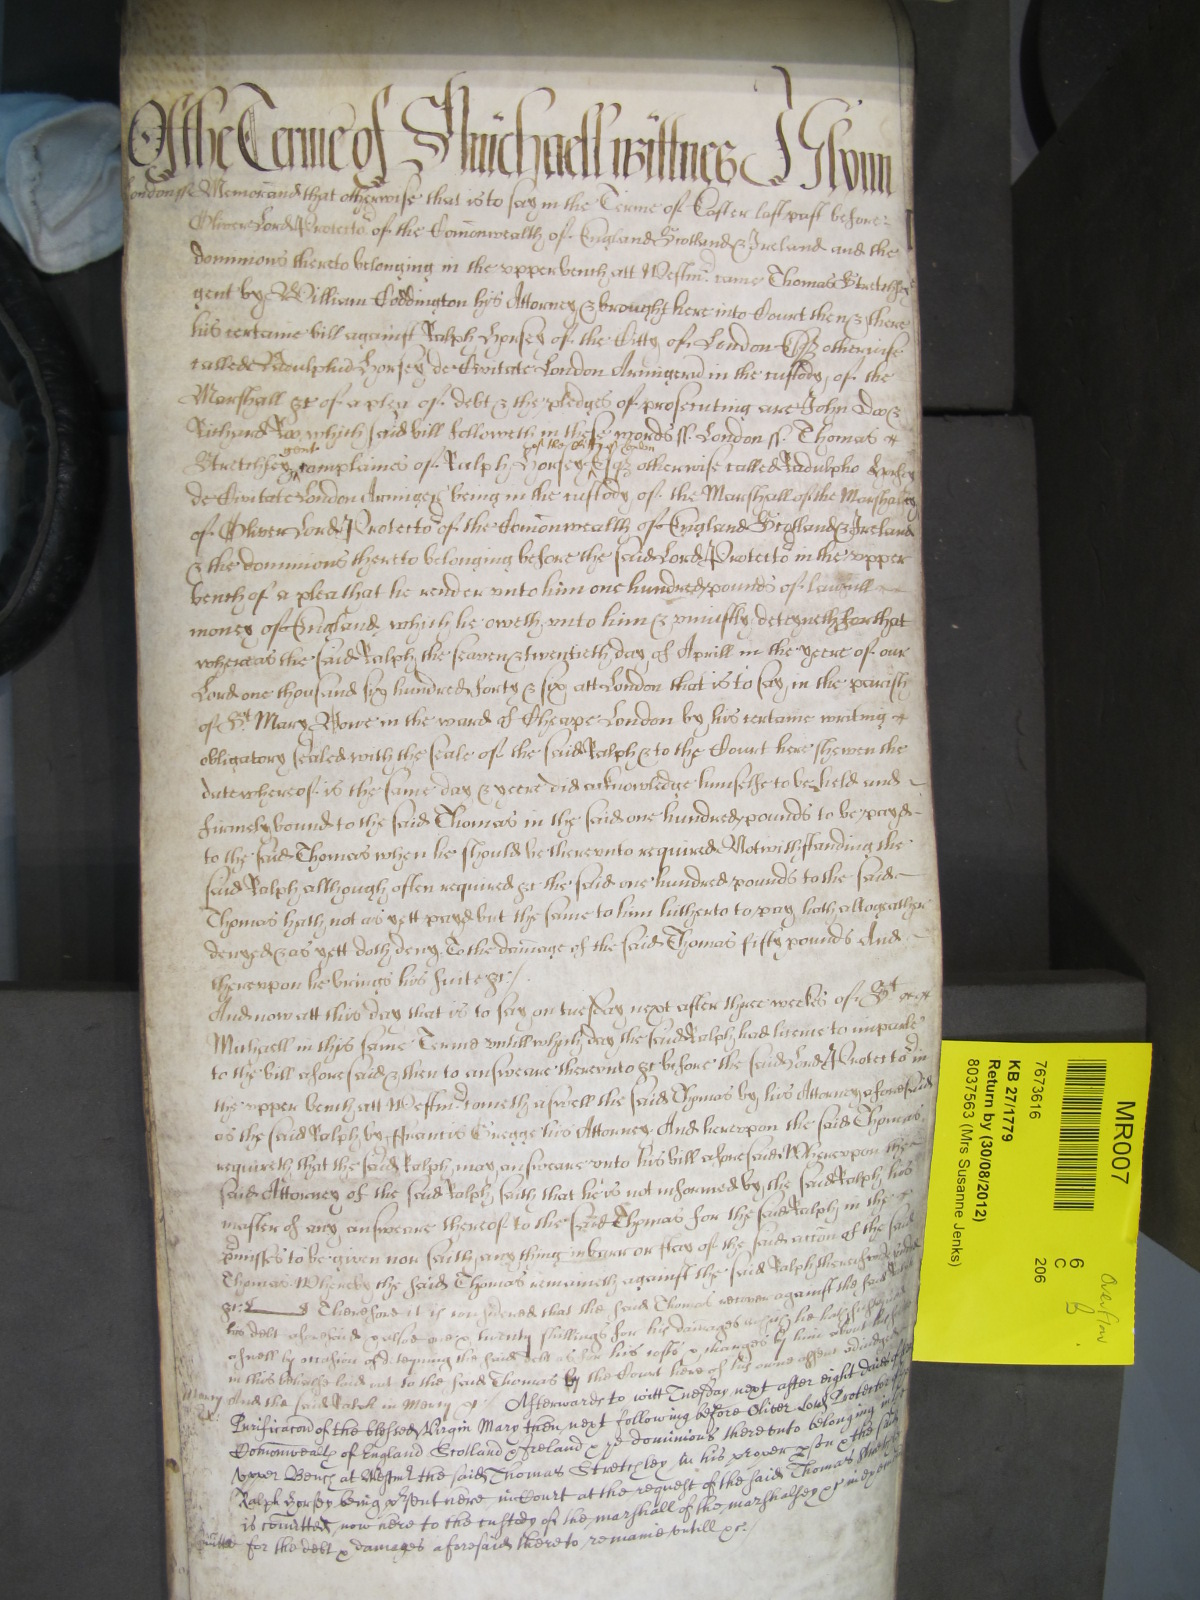 Of the Terme of St Michaell wittnes J Glynn
London ss Memorand that otherwise that is to say in the Terme of Easter last past before
Oliver Lord Protector of the Comonwealth of England Scotland & Ireland and the
dominions thereto belonging in the upper bench att Westmr came Thomas Stretchley
gent by William Coddington his Attorney & brought here into Court then & there
his certaine bill against Ralph Horsey of the Citty of London Esqr otherwise
called Radulphus Horsey de Civitate London Armigerū in the custody of the
Marshall &c of a plea of debt & the pledges of prosecuting are John Doo &
Richard Roo which said bill followeth in these words ss. London ss. Thomas
Stretchley gent complaines of Ralph Horsey of the Citty of London Esqr otherwise called Radulpho Horsey
de Civitate London Armigero being in the custody of the Marshall of the Marshalsey
of Oliver Lord Protector of the Comonwealth of England Scotland & Ireland
& the dominions thereto belonging before the said Lord Protector in the upper
bench of a plea that he render unto him one hundred pounds of lawfull
money of England which he oweth unto him & uniustly deteyneth For that
whereas the said Ralph the seaven & twentieth day of Aprill in the yeere of our
Lord one thousand six hundred forty & six att London that is to say in the parish
of St Mary Bowe in the ward of Cheape London by his certaine writing
obligatory sealed with the seale of the said Ralph & to the Court here shewen the
date whereof is the same day & yeere did acknowledge himselfe to be held and
firmely bound to the said Thomas in the said one hundred pounds to be payd
to the said Thomas when he should be thereunto required Notwithstanding the
said Ralph although often required &c the said one hundred pounds to the said
Thomas hath not as yett payd but the same to him hitherto to pay hath altogeather
denyed & as yett doth deny To the damage of the said Thomas fifty pounds And
thereupon he brings his suite &c /
And now att this day that is to say on tuesday next after three weekes of St
Michaell in this same Terme untill which day the said Ralph had licence to imparle
to the bill aforesaid & then to answeare thereunto &c before the said Lord Protector in
the upper bench att Westmr cometh aswell the said Thomas by his Attorney aforesaid
as the said Ralph by Francis Gregge his Attorney And hereupon the said Thomas
requireth that the said Ralph may answeare unto his bill aforesaid Whereupon the
said Attorney of the said Ralph saith that he is not informed by the said Ralph his
master of any answeare thereof to the said Thomas for the said Ralph in the
pmisses to be given nor saith any thing in barr or stay of the said accōn of the said
Thomas Whereby the said Thomas remaineth against the said Ralph thereof undefended
&c Therefore it is considered that the said Thomas recover against the said Ralph
his debt aforesaid & alsoe twenty shillings for his damages which he hath susteyned
aswell by occasion of deteyning the said debt as for his costs & charges by him about his suite
in this behalfe laid out to the said Thomas by the Court here of his owne assent adiudged
Mercy And the said Ralph in Mercy &c / Afterwards to witt Tuesday next after eight daies of the
Purificacōn of the blessed Virgin Mary then next following before Oliver Lord Protector of the
Comonwealth of England Scotland & Ireland & ye dominions thereunto belonging in the
Upper Bench at Westmr the said Thomas Stretchley in his proper pson & the said
Ralph Horsey being present here in Court at the request of the said Thomas Stretchley
is comitted now here to the custody of the marshall of the marshalsey &c in execution
for the debt & damages aforesaid there to remaine untill &c /
MR007
6
C
206
Overflow
7673616
KB 27/1779
Return by (30/08/2012)
8037563 (Mrs Susanne Jenks)